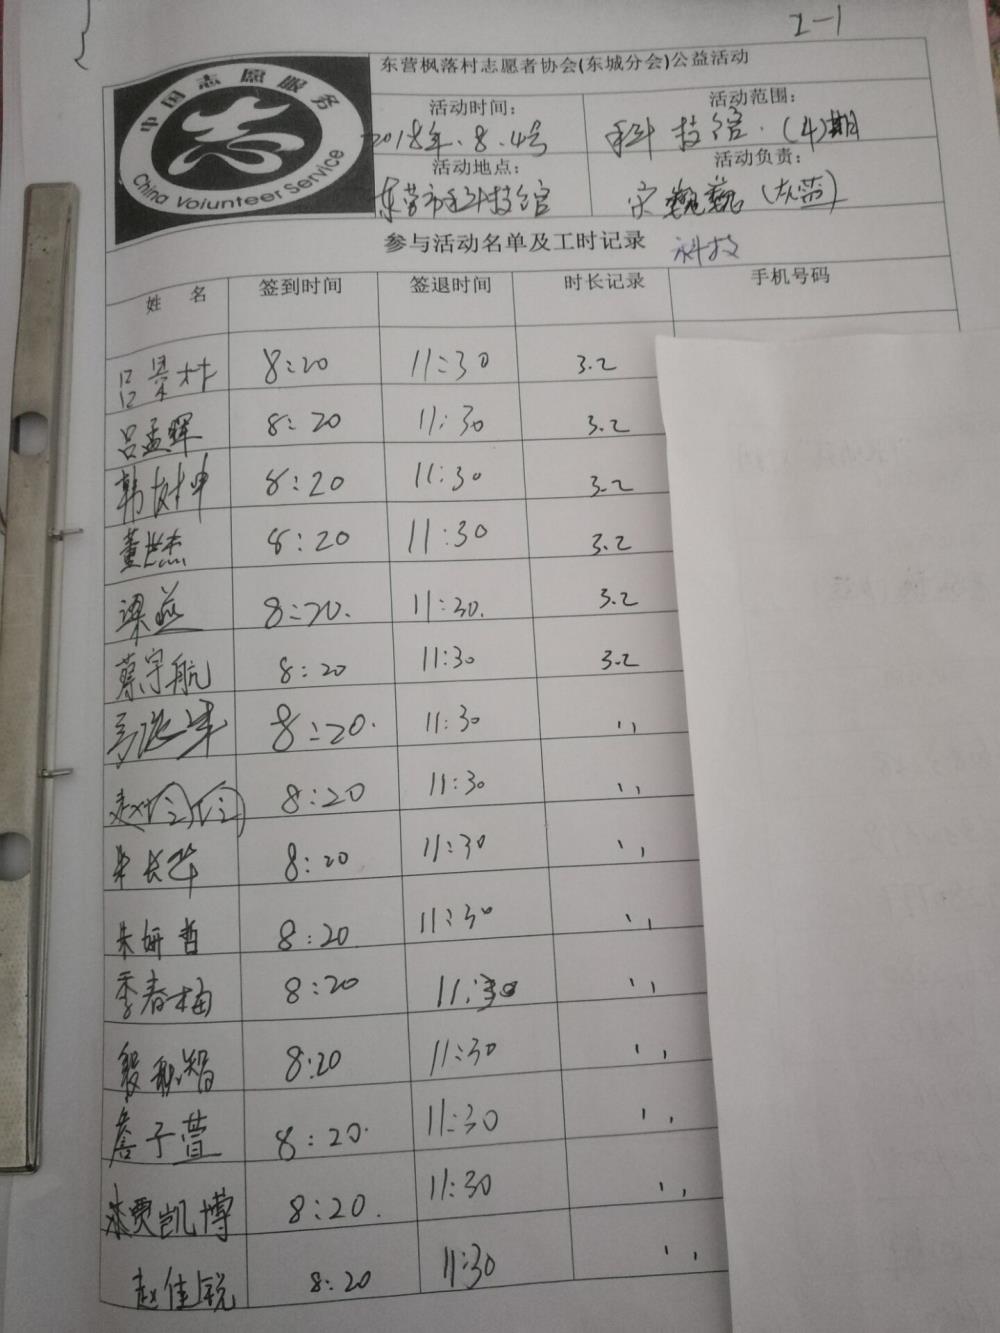 2-1
中国志愿服务
China Voiunteer Service
东营枫落村志愿者协会(东城分会)公益活动
活动时间: 活动范围:
2018年.8.4号 科技馆.(4)期
活动地点: 活动负责:
东营市科技馆 宋巍巍
参与活动名单及工时记录 科技
姓 名 签到时间 签退时间 时长记录 手机号码
吕景林 8:20 11:30 3.2
吕孟辉 8:20 11:30 3.2
韩树坤 8:20 11:30 3.2
董世杰 8:20 11:30 3.2
梁燕 8:20. 11:30. 3.2
蔡宇航 8:20 11:30 3.2
8:20. 11:30 ''
赵 8:20 11:30 ''
朱长华 8:20 11:30 ''
朱妍哲 8:20 11:30 ''
季春梅 8:20 11:30 ''
8:20 11:30 ''
詹子萱 8:20. 11:30 ''
贾凯博 8:20. 11:30 ''
赵佳锐 8:20 11:30 ''